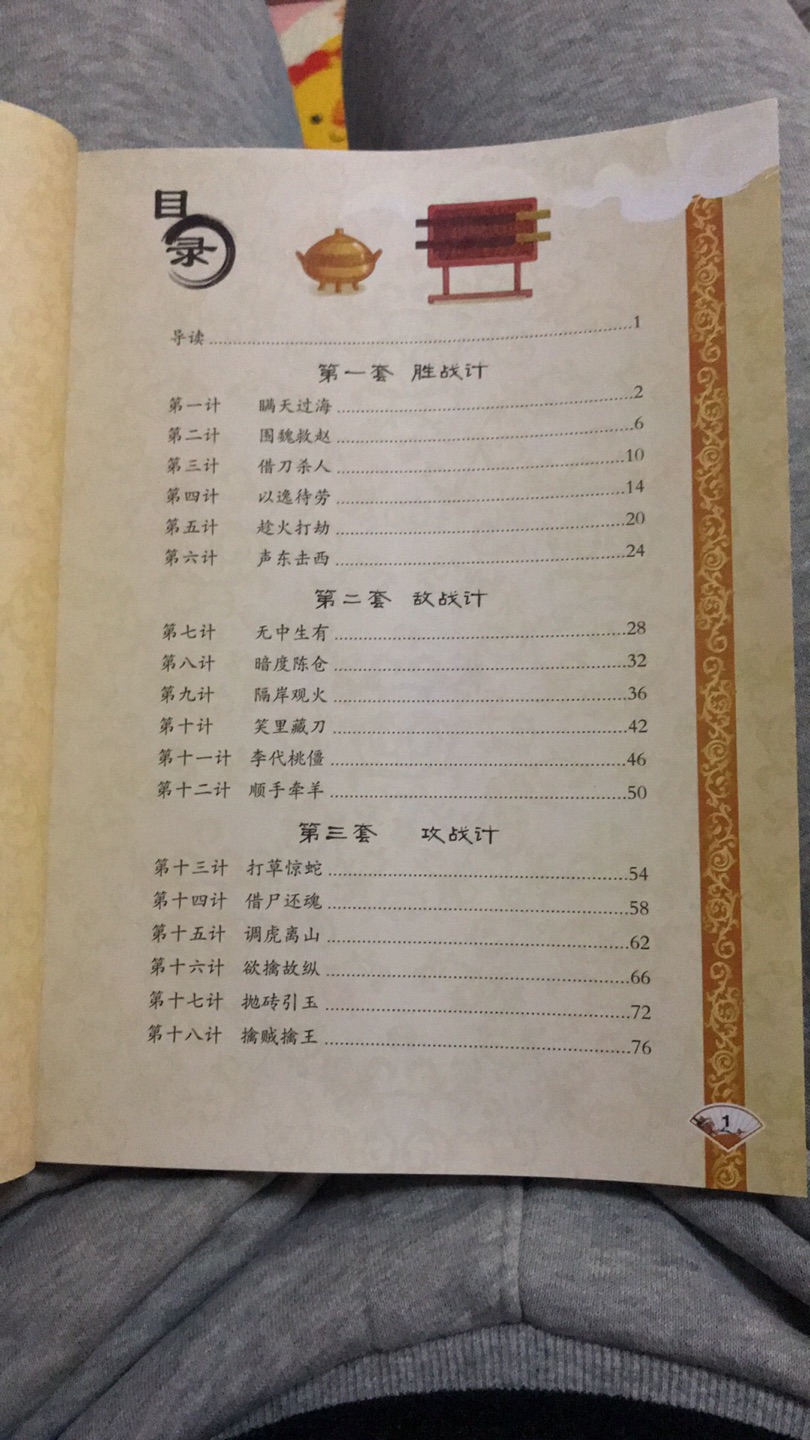 目录
导读……1
第一套 胜战计
第一计 瞒天过海……2
第二计 围魏救赵……6
第三计 借刀杀人……10
第四计 以逸待劳……14
第五计 趁火打劫……20
第六计 声东击西……24
第二套 敌战计
第七计 无中生有……28
第八计 暗度陈仓……32
第九计 隔岸观火……36
第十计 笑里藏刀……42
第十一计 李代桃僵……46
第十二计 顺手牵羊……50
第三套 攻战计
第十三计 打草惊蛇……54
第十四计 借尸还魂……58
第十五计 调虎离山……62
第十六计 欲擒故纵……66
第十七计 抛砖引玉……72
第十八计 擒贼擒王……76
1